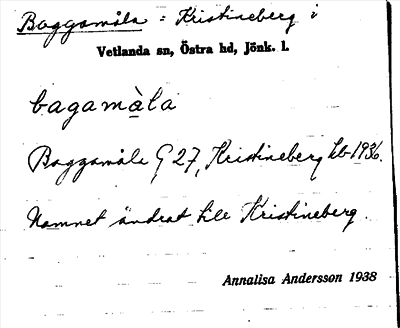 Baggamåla = Kristineberg i
Vetlanda sn, Östra hd, Jönk. l.
bagamàla
Baggamåla G 27, Kristineberg kb 1936.
Namnet ändrat till Kristineberg.
Annalisa Andersson 1938